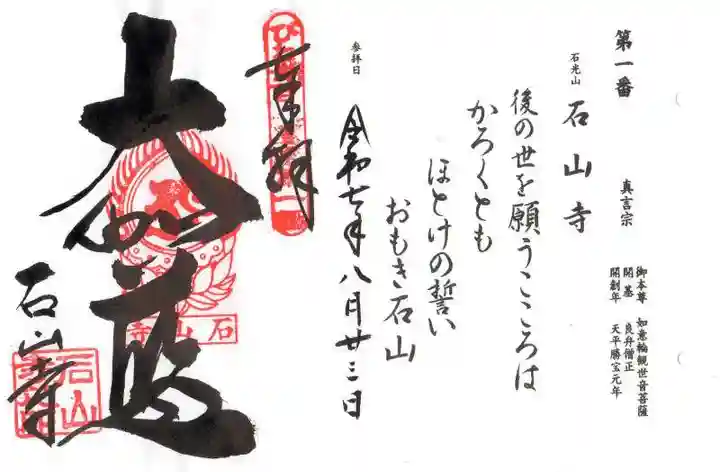 第一番
石光山 石山寺
真言宗
御本尊 如意輪観世音菩薩
開基 良弁僧正
開創年 天平勝宝元年
後の世を願うこころは
かろくとも
ほとけの誓い
おもき石山
参拝日 令和七年八月廿三日
奉拝
大伽藍
石山寺
石山寺